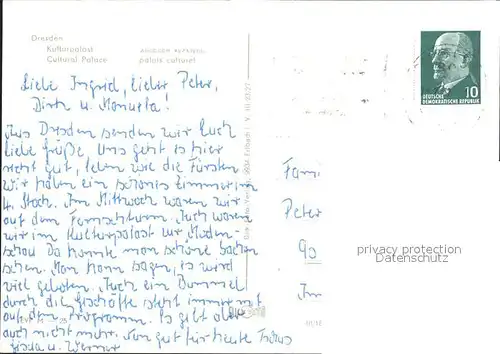 Dresden
Kulturpalast
Cultural Palace
palais culturel
Liebe Ingrid, lieber Peter,
Birth u. Manuela!
Aus Dresden senden wir Euch
liebe Grüße. Uns geht es hier
recht gut, leben wie die Fürsten
Wir haben ein schönes Zimmer im
4. Stock. Am Mittwoch waren wir
auf dem Fernsehturm. Auch waren
wir im Kulturpalast zur Moden-
schau Da konnte man schöne Sachen
sehen. Man kann sagen, es wird
viel geboten. Auch ein Bummel
durch die Geschäfte steht immer mit
auf dem Programm. Es gibt aber
auch nicht mehr. Nun gut für heute
u. Werner
DEUTSCHE
DEMOKRATISCHE REPUBLIK
10
Fami
Peter
Im
privacy protection
Datenschutz